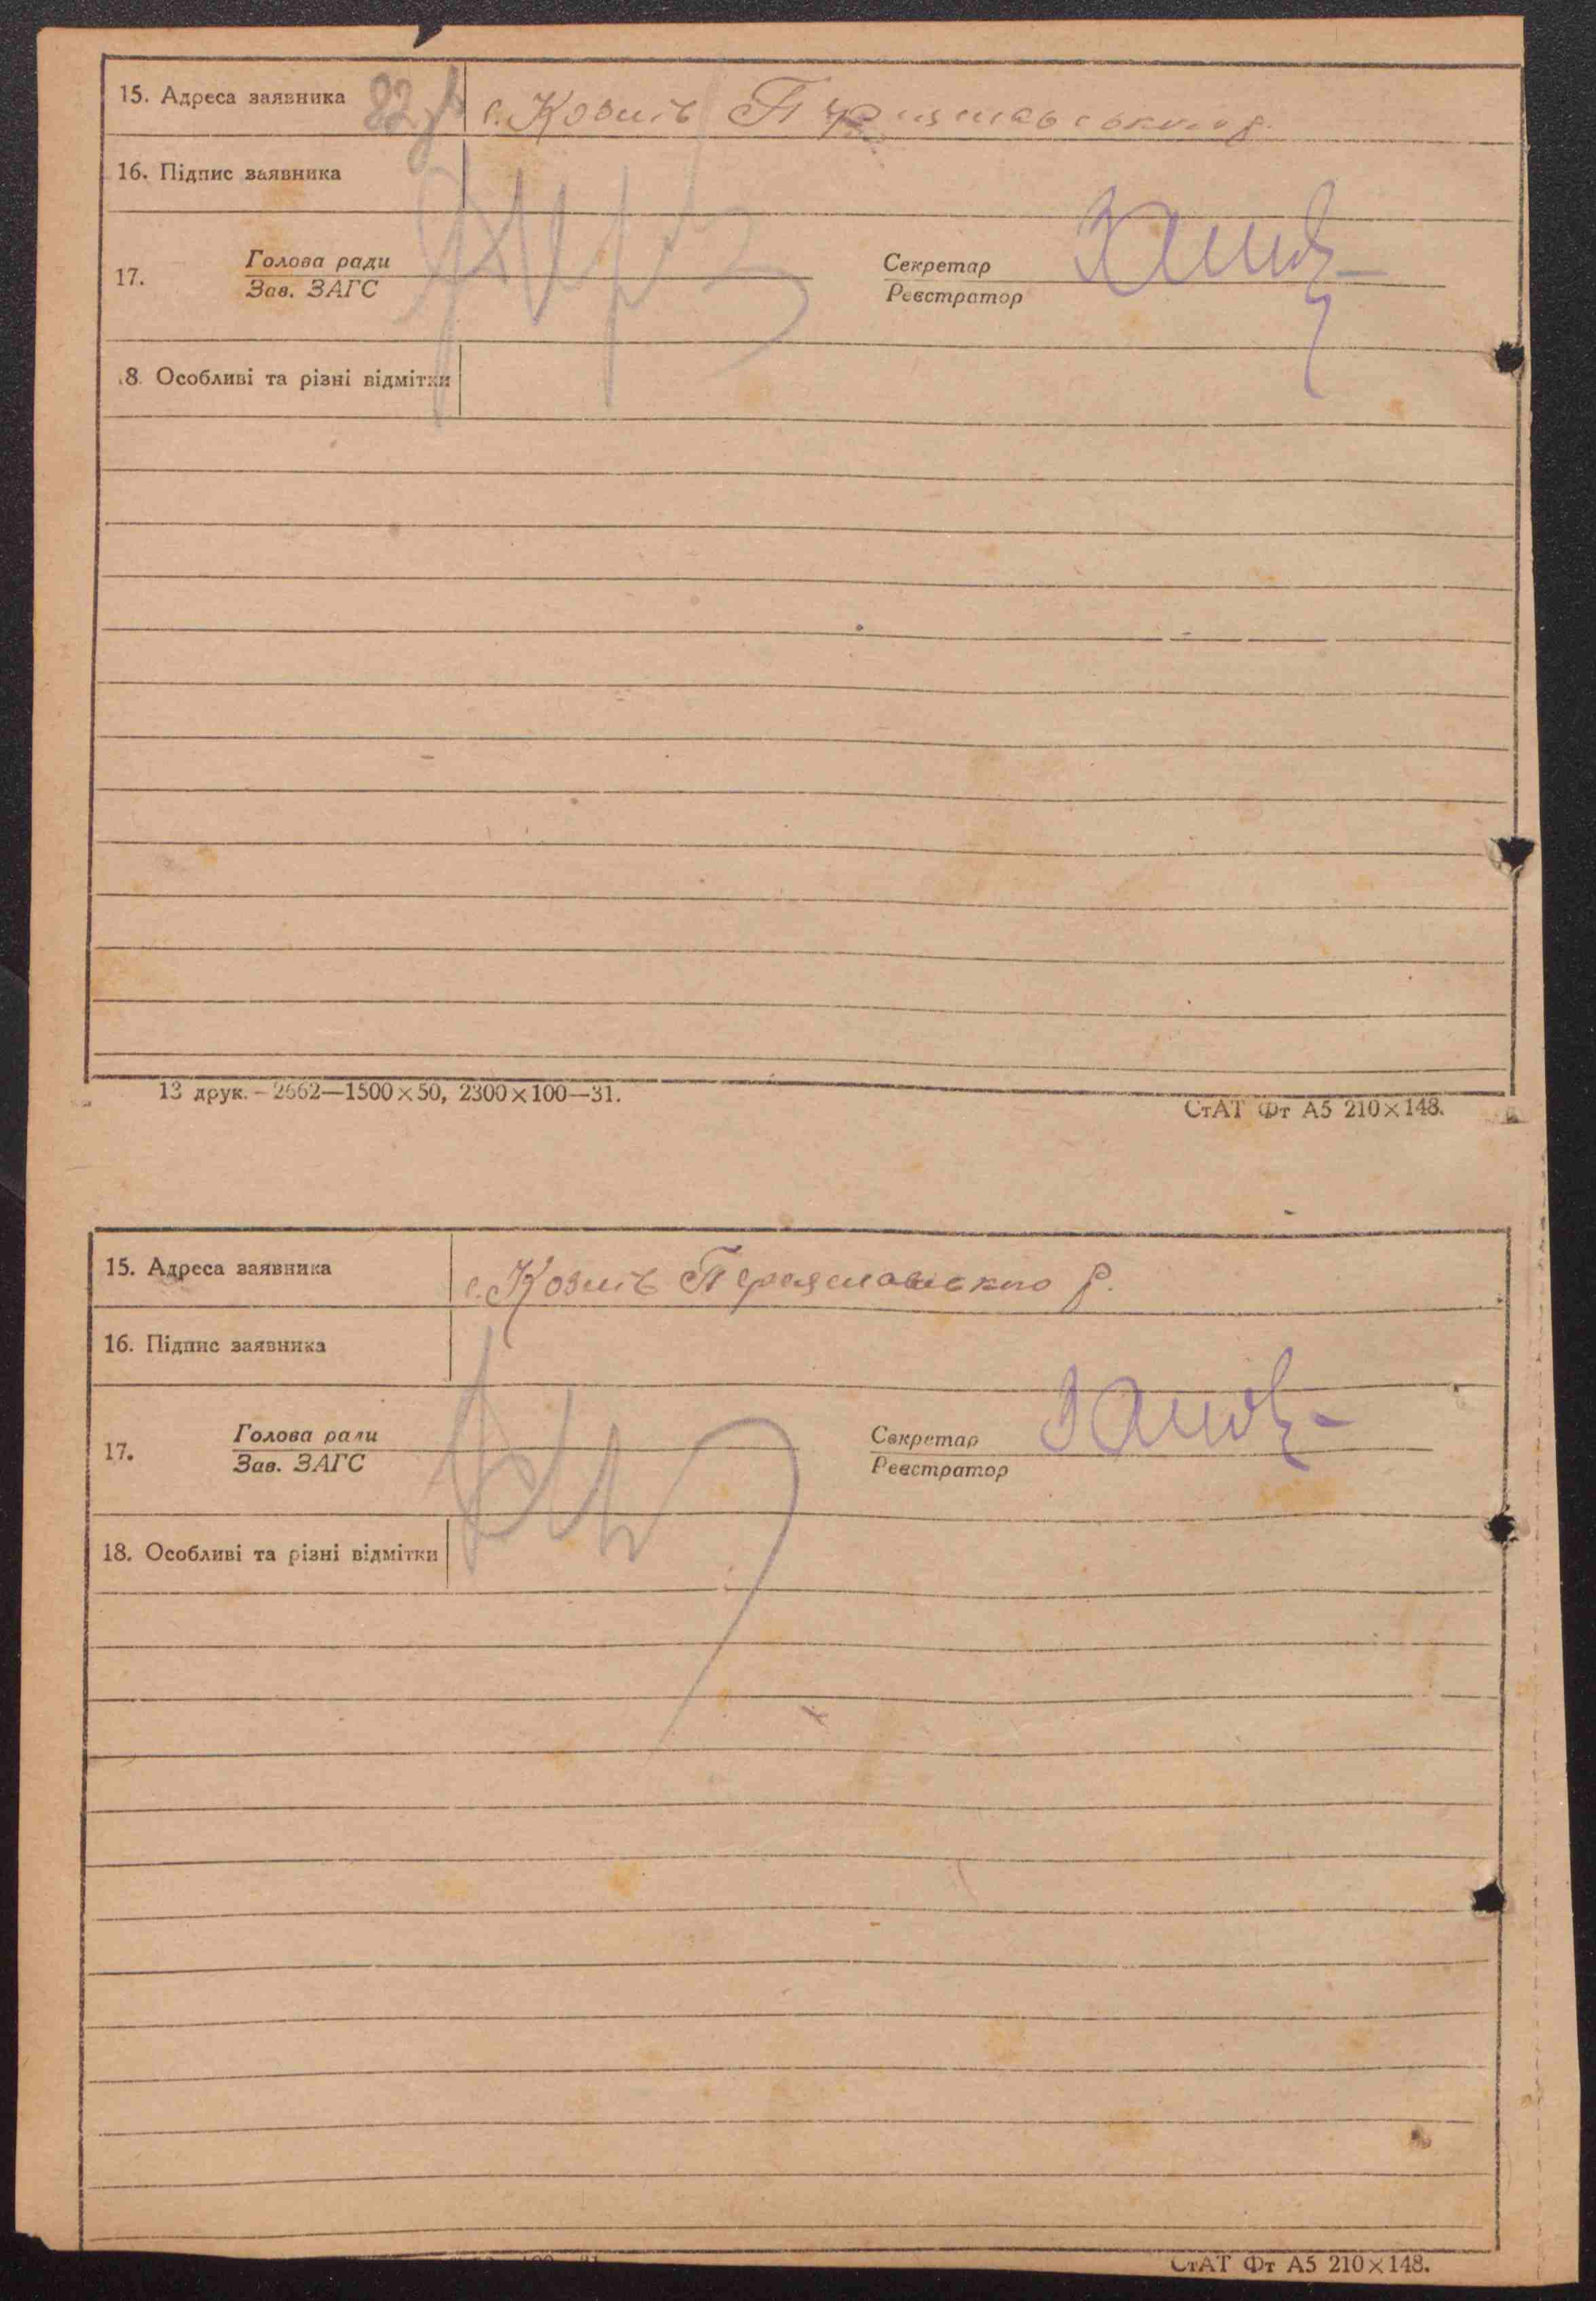 15. Адреса заявника с. Козлів Переяславського р.
16. Підпис заявника
Голова ради Секретар
17.
Зав. ЗАГС Реєстратор
8. Особливі та різні відмітки
13 друк. – 2662—1500×50, 2300×100—31.
СтАТ Фт А5 210×148.
15. Адреса заявника с. Козлів Переяславського р.
16. Підпис заявника
Голова ради Секретар
17.
Зав. ЗАГС Реєстратор
18. Особливі та різні відмітки
СтАТ Фт А5 210×148.